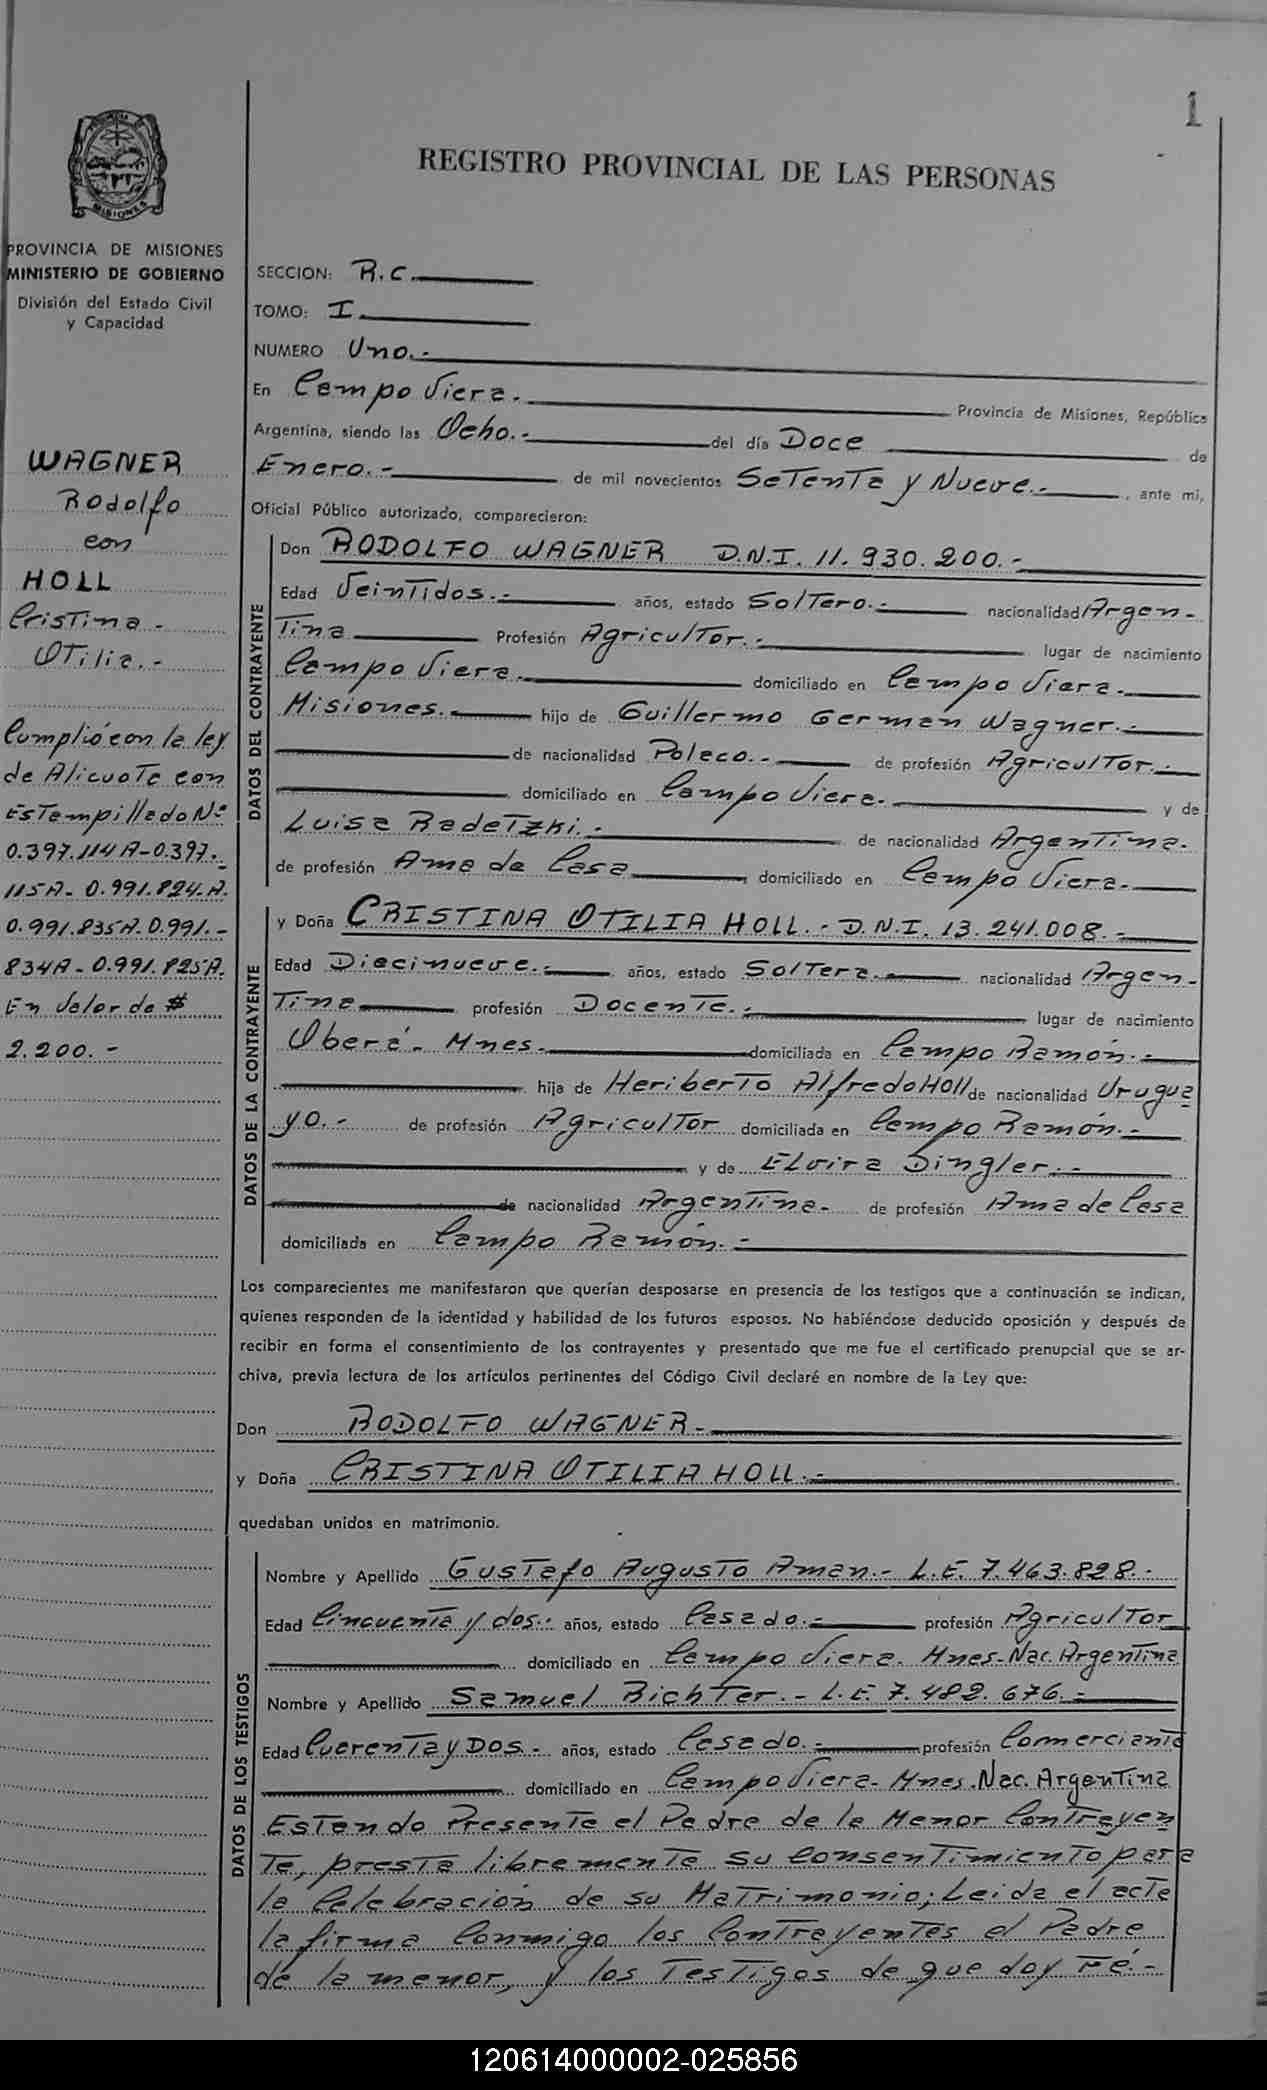 1
REGISTRO PROVINCIAL DE LAS PERSONAS
MISIONES
PROVINCIA DE MISIONES
MINISTERIO DE GOBIERNO
División del Estado Civil
y Capacidad
WAGNER
Rodolfo
con
HOLL
Cristina.-
Otilia.-
Cumplió con la ley
de Alicuota con
Estampillado Nº
0.397.114A-0.397.-
115A- 0.991.824.A.
0.991.835A. 0.991.-
834A- 0.991.825A.
En Valor de $
2.200.-
SECCION: R.C.
TOMO: I.
NUMERO Uno.-
En Campo Viera. Provincia de Misiones, República
Argentina, siendo las Ocho.- del día Doce de
Enero.- de mil novecientos Setenta y Nueve.-, ante mi,
Oficial Público autorizado, comparecieron:
DATOS DEL CONTRAYENTE
Don RODOLFO WAGNER D.N.I. 11.930.200.-
Edad Veintidos.- años, estado Soltero.- nacionalidad Argen-
tina Profesión Agricultor.- lugar de nacimiento
Campo Viera. domiciliado en Campo Viera.
Misiones. hijo de Guillermo German Wagner.-
de nacionalidad Polaco.- de profesión Agricultor.-
domiciliado en Campo Viera. y de
Luisa Radetzki.- de nacionalidad Argentina.
de profesión Ama de Casa domiciliado en Campo Viera.
DATOS DE LA CONTRAYENTE
y Doña CRISTINA OTILIA HOLL.- D.N.I. 13.241.008.-
Edad Diecinueve.- años, estado Soltera. nacionalidad Argen-
tina profesión Docente.- lugar de nacimiento
Oberá- Mnes. domiciliada en Campo Ramón.-
hija de Heriberto Alfredo Holl de nacionalidad Urugua
yo.- de profesión Agricultor domiciliada en Campo Ramón.-
y de Elvira Dingler.-
de nacionalidad Argentina.- de profesión Ama de Casa
domiciliada en Campo Ramón.-
Los comparecientes me manifestaron que querían desposarse en presencia de los testigos que a continuación se indican,
quienes responden de la identidad y habilidad de los futuros esposos. No habiéndose deducido oposición y después de
recibir en forma el consentimiento de los contrayentes y presentado que me fue el certificado prenupcial que se ar-
chiva, previa lectura de los artículos pertinentes del Código Civil declaré en nombre de la Ley que:
Don RODOLFO WAGNER.-
y Doña CRISTINA OTILIA HOLL.-
quedaban unidos en matrimonio.
DATOS DE LOS TESTIGOS
Nombre y Apellido Gustafo Augusto Aman.- L.E. 7.463.828.-
Edad Cincuenta y dos.- años, estado Casado.- profesión Agricultor
domiciliado en Campo Viera. Mnes-Nac. Argentina
Nombre y Apellido Samuel Richter.- L.E. 7.482.676.-
Edad Cuarenta y Dos.- años, estado Casado.- profesión Comerciante
domiciliado en Campo Viera- Mnes. Nac. Argentina
Estando Presente el Padre de la Menor Contrayen
te, presta libremente su Consentimiento para
la Celebración de su Matrimonio; Leida el acta
la firma Conmigo los Contrayentes el Padre
de la menor, y los Testigos de que doy Fé.-
120614000002-025856